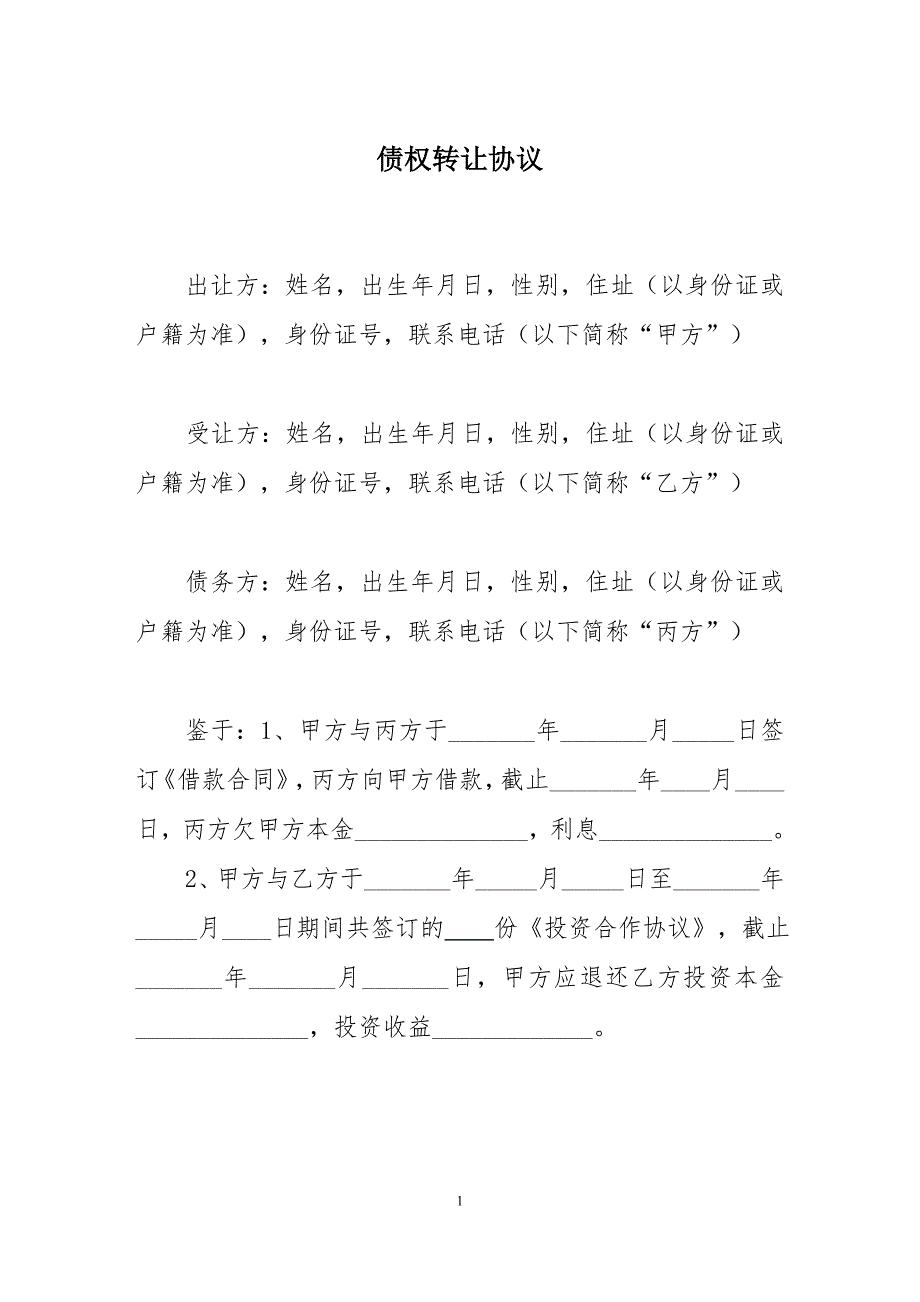 债权转让协议
出让方：姓名，出生年月日，性别，住址（以身份证或
户籍为准），身份证号，联系电话（以下简称“甲方”）
受让方：姓名，出生年月日，性别，住址（以身份证或
户籍为准），身份证号，联系电话（以下简称“乙方”）
债务方：姓名，出生年月日，性别，住址（以身份证或
户籍为准），身份证号，联系电话（以下简称“丙方”）
鉴于：1、甲方与丙方于_______年_______月_____日签
订《借款合同》，丙方向甲方借款，截止_______年____月____
日，丙方欠甲方本金______________，利息______________。
2、甲方与乙方于_______年_____月_____日至_______年
_____月____日期间共签订的____份《投资合作协议》，截止
_______年_______月_______日，甲方应退还乙方投资本金
______________，投资收益_____________。
1